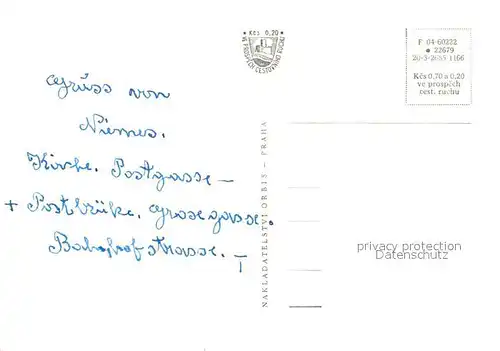 Kčs 0,70
VE PROSPĚCH CESTOVNÍHO RUCHU
F 04-60222
22679
20-3-2655 1166
Kčs 0,70 a 0,20
ve prospěch
cest. ruchu
Grüss von
Niemes.
Kirche. Postgasse —
+ Postbrüke. Grosegasse.
Bahnhofstrasse. —
NAKLADATELSTVÍ ORBIS - PRAHA
privacy protection
Datenschutz